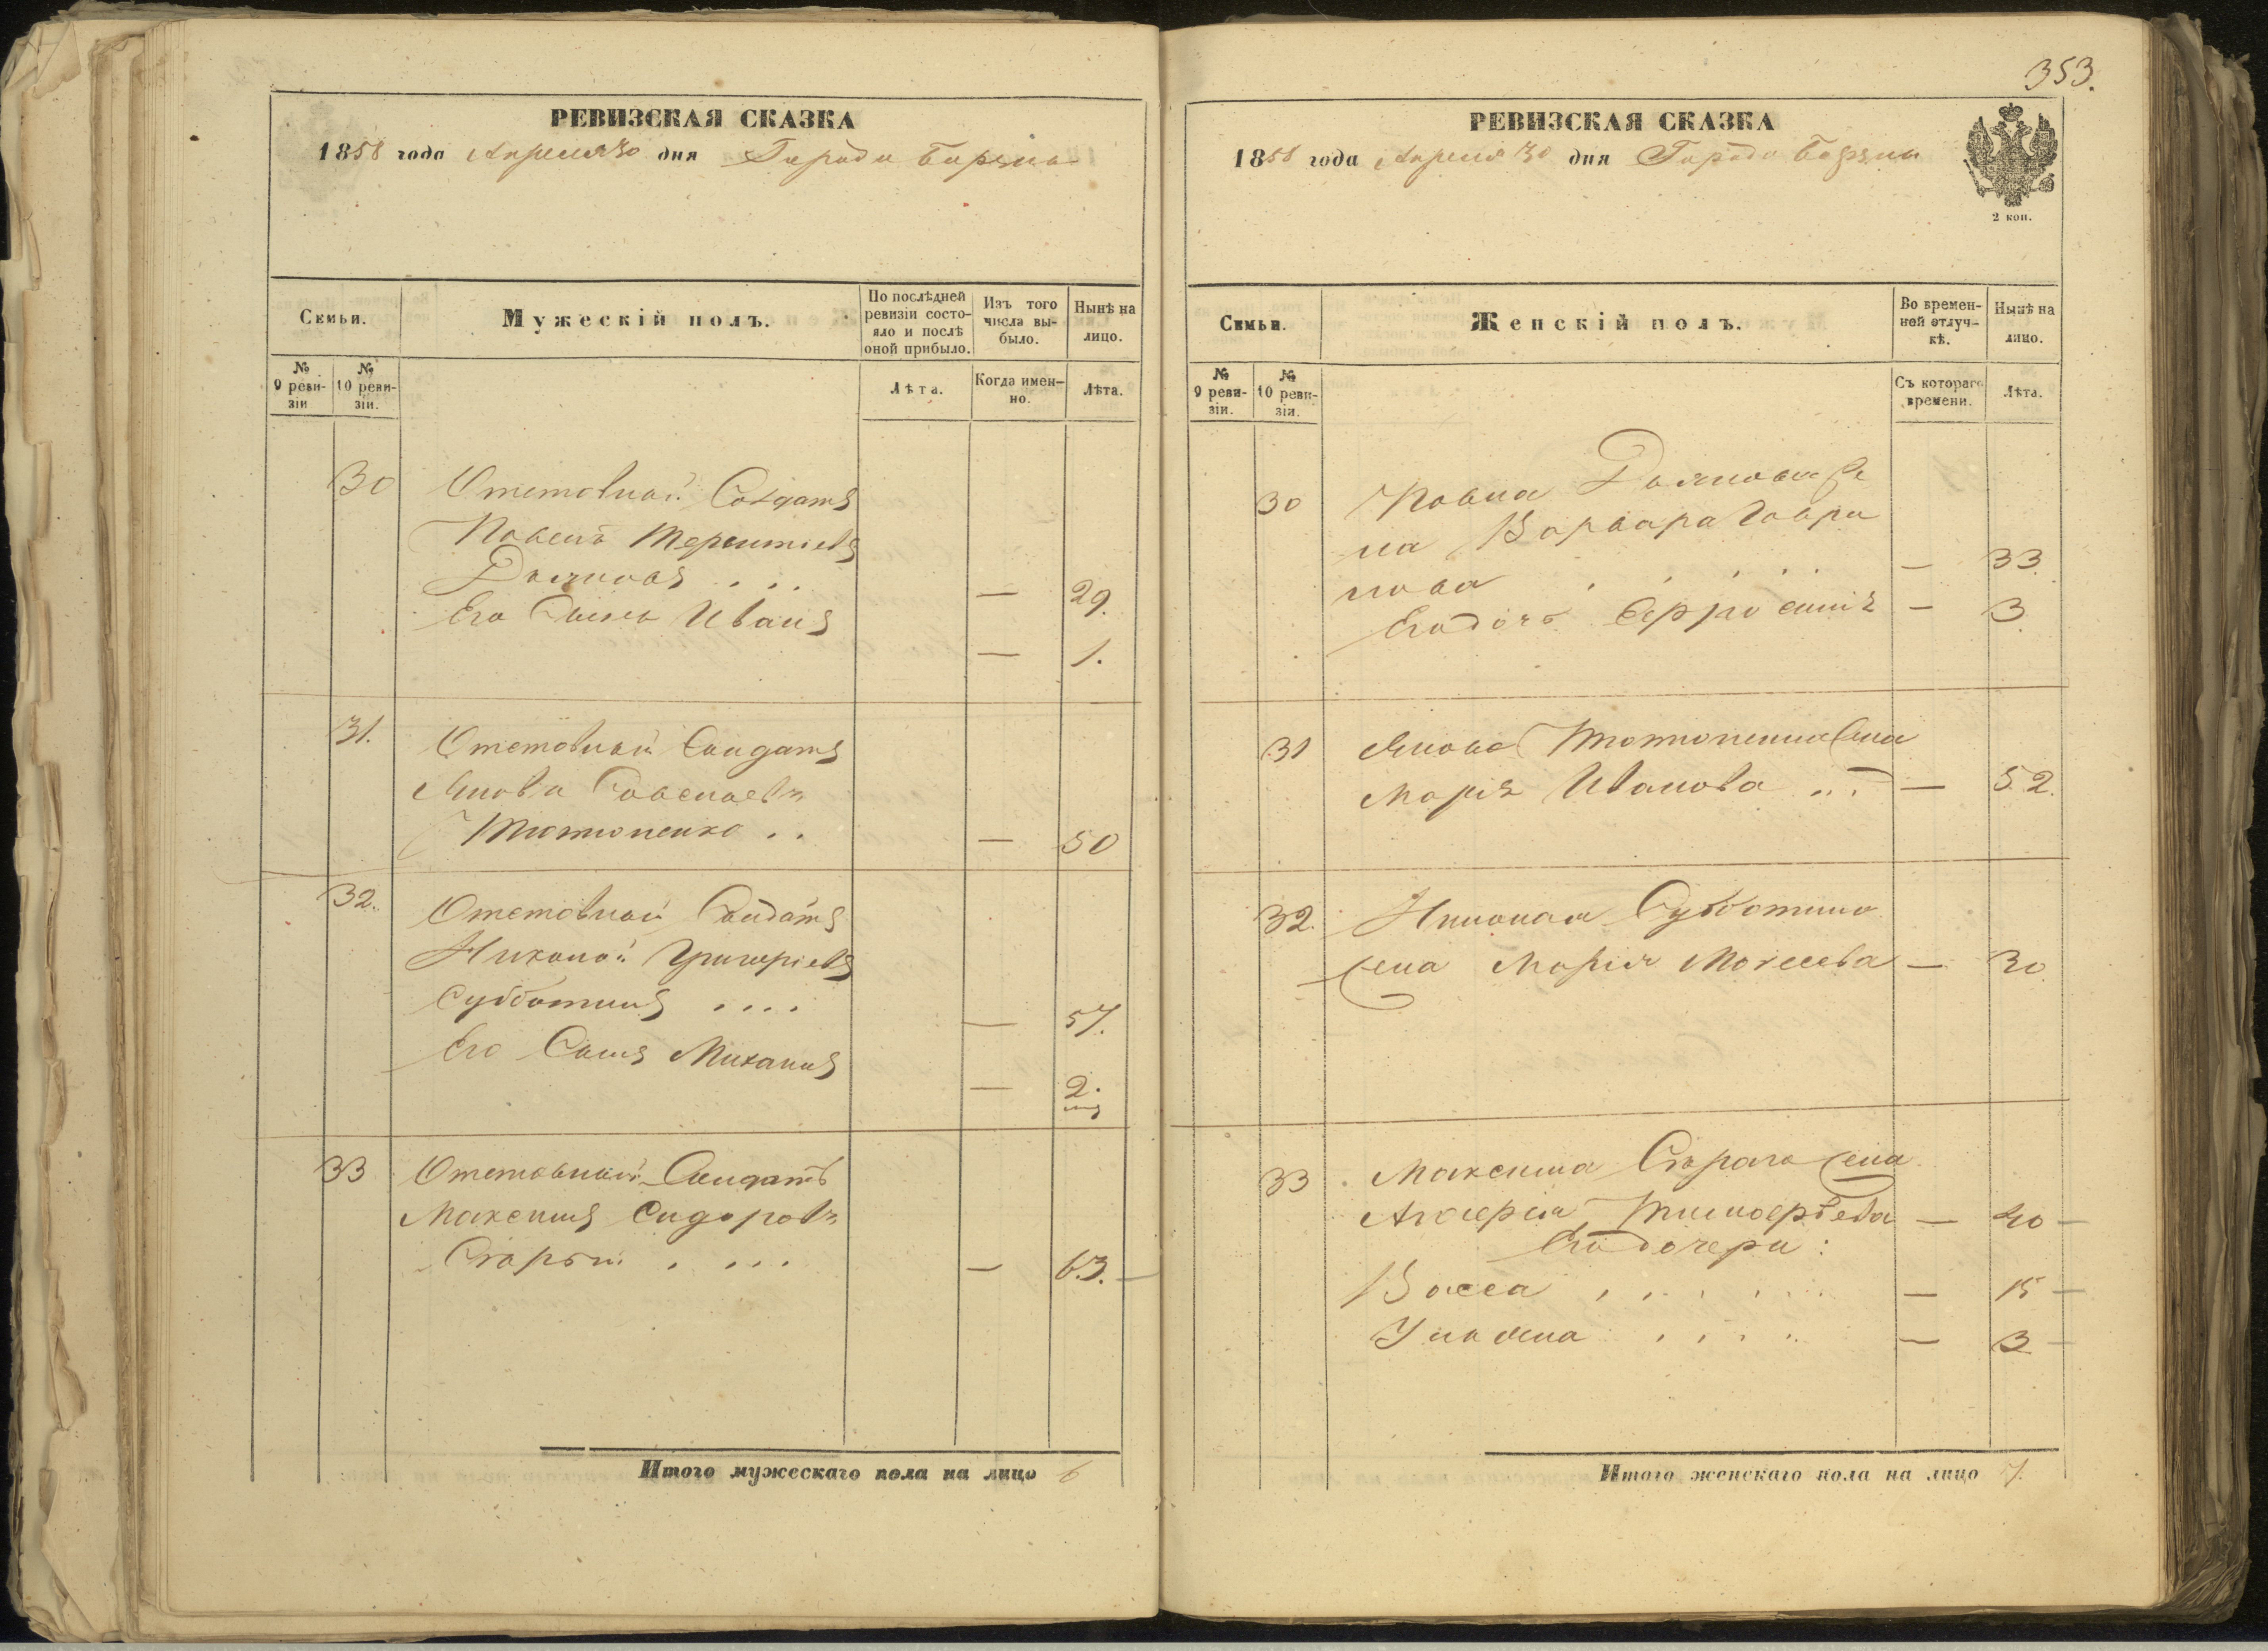 353.
РЕВИЗСКАЯ СКАЗКА
1858 года Апреля 30 дня Города Борзны
Семьи.
Мужескій полъ.
По послѣдней ревизіи состояло и послѣ оной прибыло.
Изъ того числа выбыло.
Нынѣ на лицо.
№ 9 ревизіи
№ 10 ревизіи.
Лѣта.
Когда именно.
Лѣта.
30 Отставной Солдатъ
Павелъ Терентіевъ
— 29.
Его Сынъ Иванъ
— 1.
31. Отставной Солдатъ
Яковъ Савельевъ
Тютюненко . . — 50
32. Отставной Солдатъ
Николай Григоріевъ
Субботинъ . . . . — 57.
Его Сынъ Михаилъ
— 2.
33 Отставный Солдатъ
Максимъ Сидоровъ
Старый . . . . — 63. —
Итого мужескаго пола на лицо 6
РЕВИЗСКАЯ СКАЗКА
1858 года Апреля 30 дня Города Борзны
2 коп.
Семьи.
Женскій полъ.
Во временной отлучкѣ.
Нынѣ на лицо.
№ 9 ревизіи.
№ 10 ревизіи.
Съ котораго времени.
Лѣта.
30 Павла Же
на Варвара Гаври
лова . . . . . — 33.
Его дочь Ефросинія — 3.
31 Якова Тютюненка Жена
Марія Иванова . . . — 52.
32. Николая Субботина
Жена Марія Моисеева — 30.
33 Максима Стараго Жена
Тимофѣева — 40 —
Его дочери :
Васса . . . . . . — 15 —
Ульяна . . . . . — 3 —
Итого женскаго пола на лицо 7.